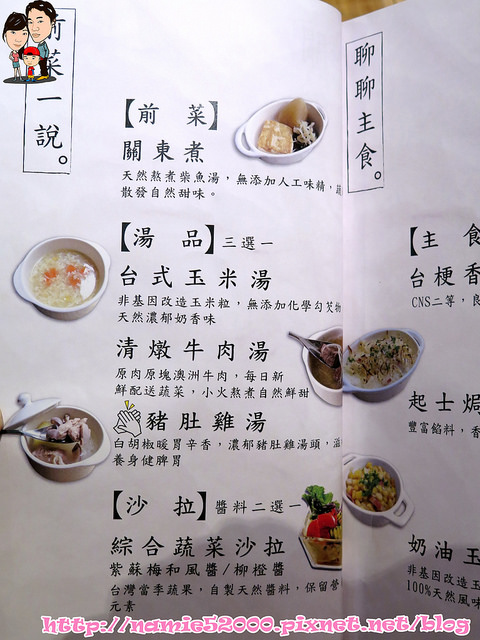 前菜一說。
【前 菜】
關東煮
天然熬煮柴魚湯，無添加人工味精，蔬
散發自然甜味。
【湯 品】三選一
台式玉米湯
非基因改造玉米粒，無添加化學勾芡物
天然濃郁奶香味
清燉牛肉湯
原肉原塊澳洲牛肉，每日新
鮮配送蔬菜，小火熬煮自然鮮甜
豬肚雞湯
白胡椒暖胃辛香，濃郁豬肚雞湯頭，溫
養身健脾胃
【沙 拉】醬料二選一
綜合蔬菜沙拉
紫蘇梅和風醬/柳橙醬
台灣當季蔬果，自製天然醬料，保留營
元素
聊聊主食。
【主 食
台梗香
CNS二等，良
起士焗
豐富餡料，香
奶油玉
非基因改造玉
100%天然風味
http://namie52000.pixnet.net/blog